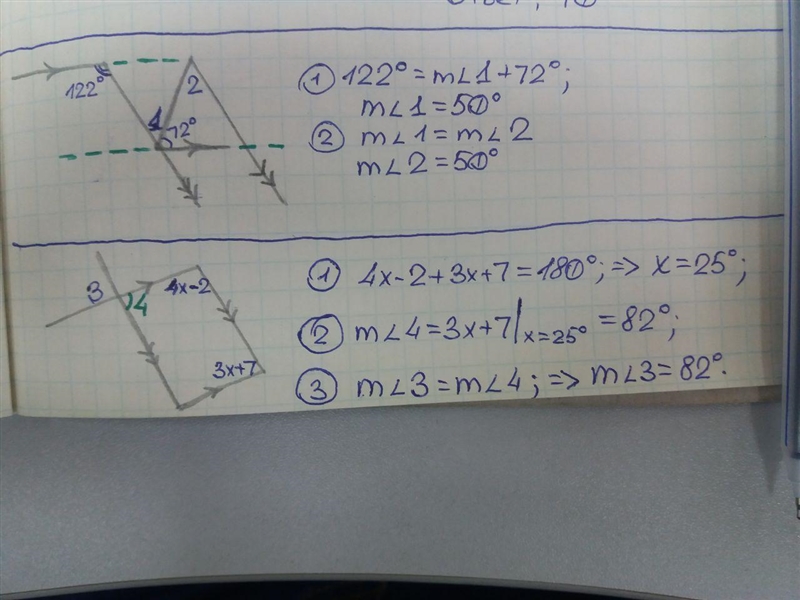 122°
1
72°
2
① 122° = m∠1 + 72°;
m∠1 = 50°
② m∠1 = m∠2
m∠2 = 50°
3
4
4x-2
3x+7
① 4x-2+3x+7=180°; => x=25°;
② m∠4=3x+7|x=25° =82°;
③ m∠3=m∠4; => m∠3=82°.